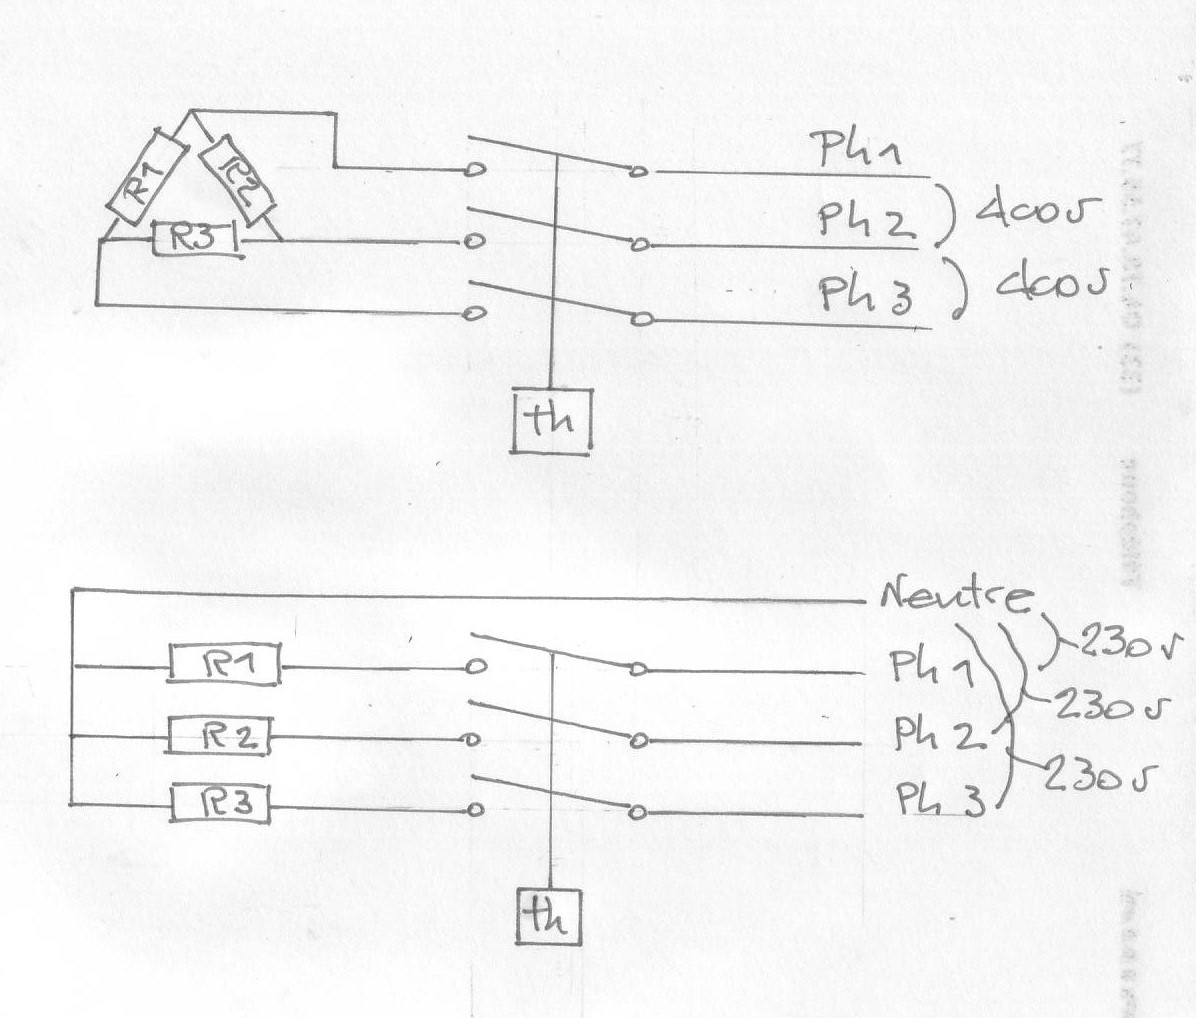 Ph1
R1
R2
Ph2
400v
R3
Ph3
400v
th
Neutre
230v
R1
Ph1
230v
R2
Ph2
230v
R3
Ph3
th